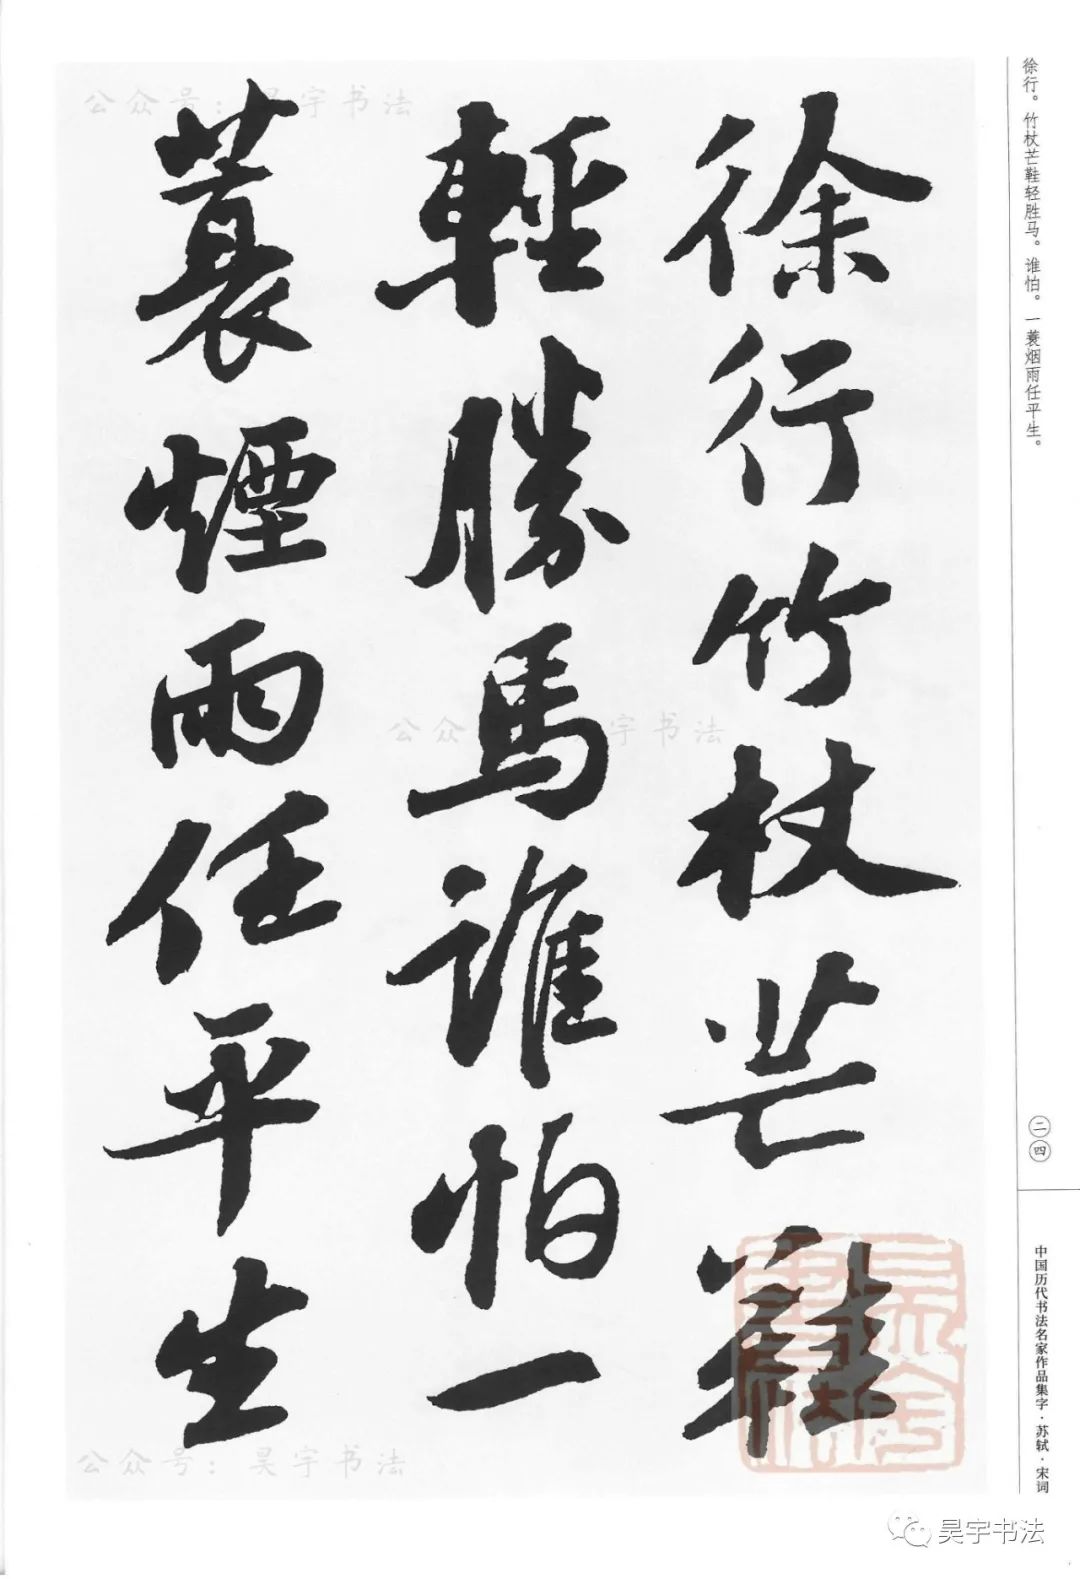 徐行。竹杖芒鞋轻胜马。谁怕。一蓑烟雨任平生。
二四
中国历代书法名家作品集字·苏轼·宋词
徐行竹杖芒鞋
輕勝馬誰怕一
蓑煙雨任平生
公众号：昊宇书法
公众 宇书法
公众号：昊宇书法
昊宇书法
昊宇书法